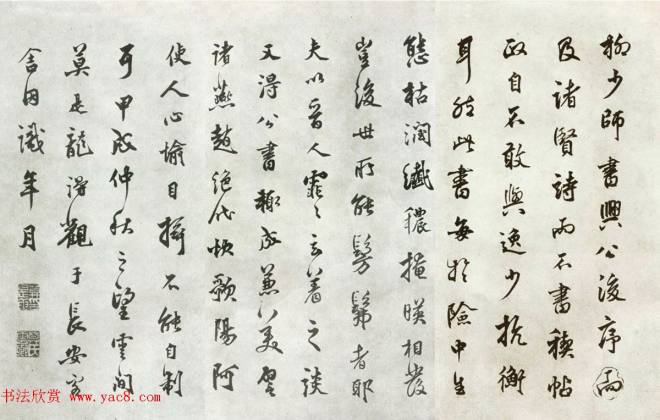 柳少師書興公後序
及諸賢詩而不書禊帖
政自不敢與逸少抗衡
耳然此書每於險中生
態枯潤纖穠掩映相發
豈後世所能髣髴者耶
夫以晉人霏霏玄著之談
又得公書輒成兼美譬
諸燕趙絕代快歌陽阿
使人心愉目搖不能自制
耳甲戌仲秋之望雲間
莫是龍得觀于長安客
舍因識年月
书法欣赏 www.yac8.com